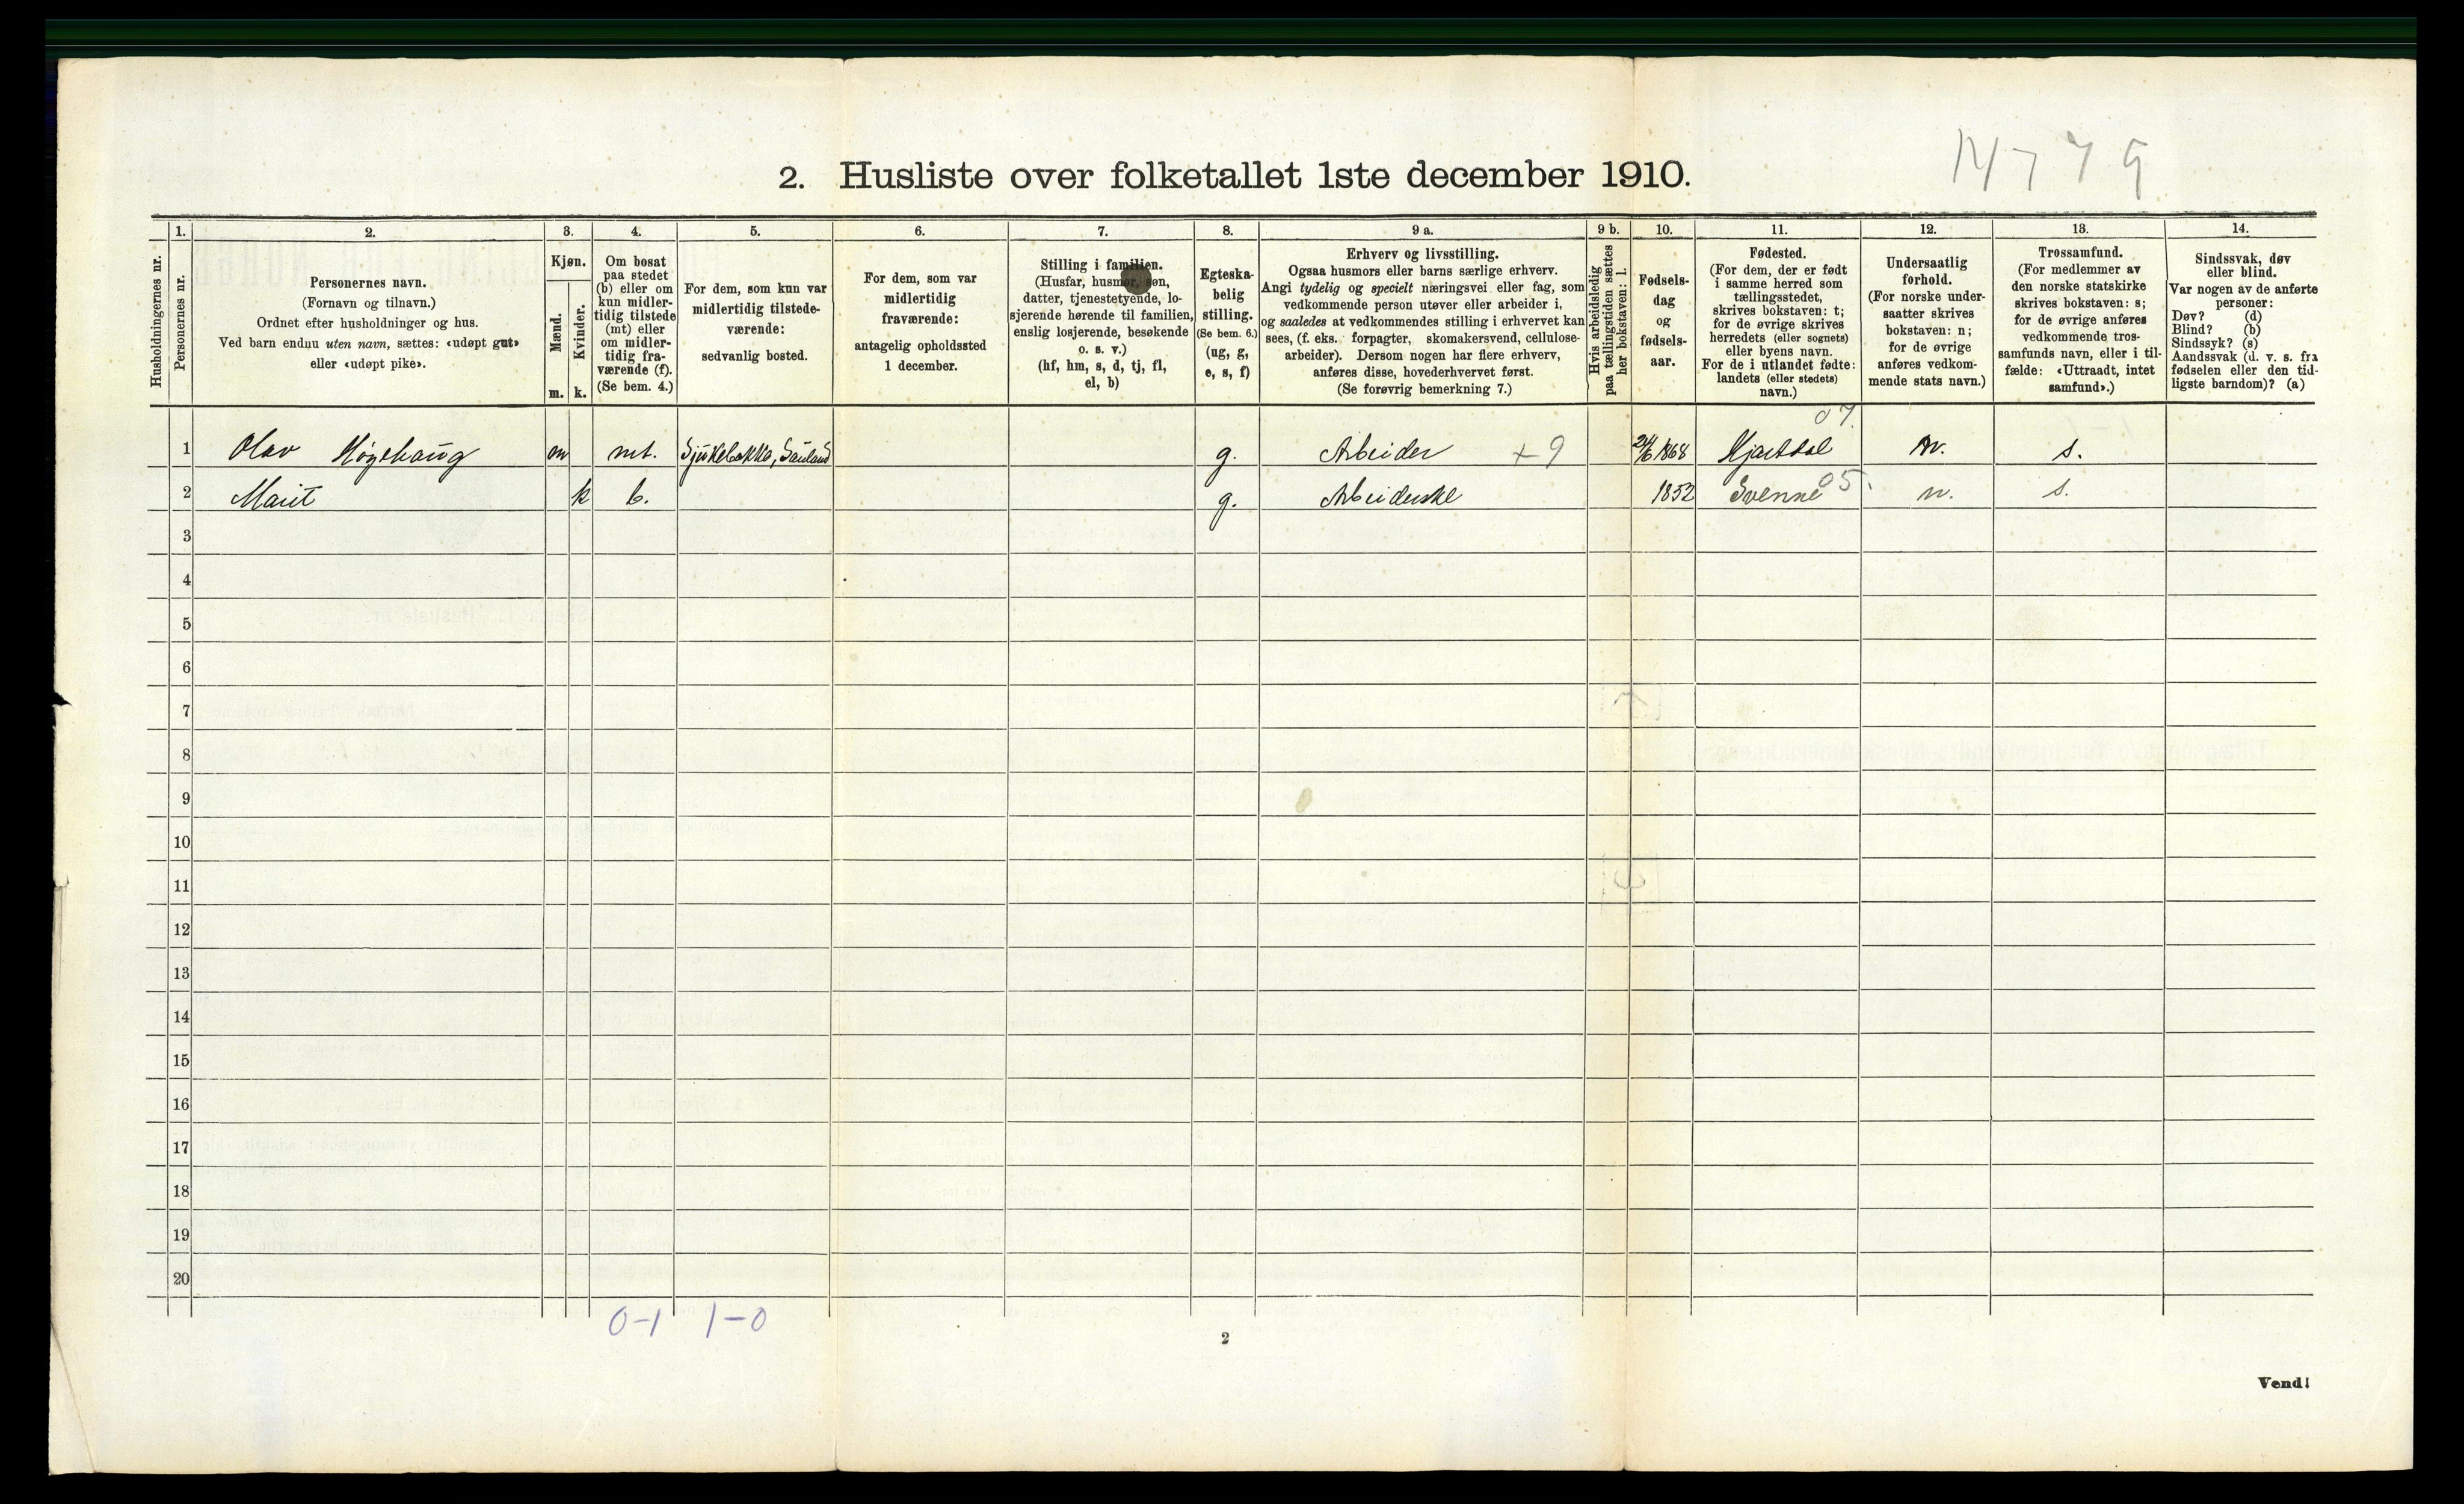 14779
2. Husliste over folketallet 1ste december 1910.
Husholdningernes nr.
1.
Personernes nr.
2.
Personernes navn.
(Fornavn og tilnavn.)
Ordnet efter husholdninger og hus.
Ved barn endnu uten navn, sættes: «udøpt gut»
eller «udøpt pike».
3.
Kjøn.
Mænd.
Kvinder.
m. k.
4.
Om bosat
paa stedet
(b) eller om
kun midler-
tidig tilstede
(mt) eller
om midler-
tidig fra-
værende (f).
(Se bem. 4.)
5.
For dem, som kun var
midlertidig tilstede-
værende:
sedvanlig bosted.
6.
For dem, som var
midlertidig
fraværende:
antagelig opholdssted
1 december.
7.
Stilling i familien.
(Husfar, husmor, søn,
datter, tjenestetyende, lo-
sjerende hørende til familien,
enslig losjerende, besøkende
o. s. v.)
(hf, hm, s, d, tj, fl,
el, b)
8.
Egteska-
belig
stilling.
(Se bem. 6.)
(ug, g,
e, s, f)
9 a.
Erhverv og livsstilling.
Ogsaa husmors eller barns særlige erhverv.
Angi tydelig og specielt næringsvei eller fag, som
vedkommende person utøver eller arbeider i,
og saaledes at vedkommendes stilling i erhvervet kan
sees, (f. eks. forpagter, skomakersvend, cellulose-
arbeider). Dersom nogen har flere erhverv,
anføres disse, hovederhvervet først.
(Se forøvrig bemerkning 7.)
9 b.
Hvis arbeidsledig
paa tællingstiden sættes
her bokstaven: l.
10.
Fødsels-
dag
og
fødsels-
aar.
11.
Fødested.
(For dem, der er født
i samme herred som
tællingsstedet,
skrives bokstaven: t;
for de øvrige skrives
herredets (eller sognets)
eller byens navn.
For de i utlandet fødte:
landets (eller stedets)
navn.)
12.
Undersaatlig
forhold.
(For norske under-
saatter skrives
bokstaven: n;
for de øvrige
anføres vedkom-
mende stats navn.)
13.
Trossamfund.
(For medlemmer av
den norske statskirke
skrives bokstaven: s;
for de øvrige anføres
vedkommende tros-
samfunds navn, eller i til-
fælde: «Uttraadt, intet
samfund».)
14.
Sindssvak, døv
eller blind.
Var nogen av de anførte
personer:
Døv? (d)
Blind? (b)
Sindssyk? (s)
Aandssvak (d. v. s. fra
fødselen eller den tid-
ligste barndom)? (a)
07.
1 Olav Høgehaug m mt. Sauland g. Arbeider +9 1868 Hjartdal n. s.
2 Marit k b. g. Arbeiderske 1852 Svenne 05. n. s.
3
4
5
6
7
8
9
10
11
12
13
14
15
16
17
18
19
20
0-1 1-0
2
Vend!